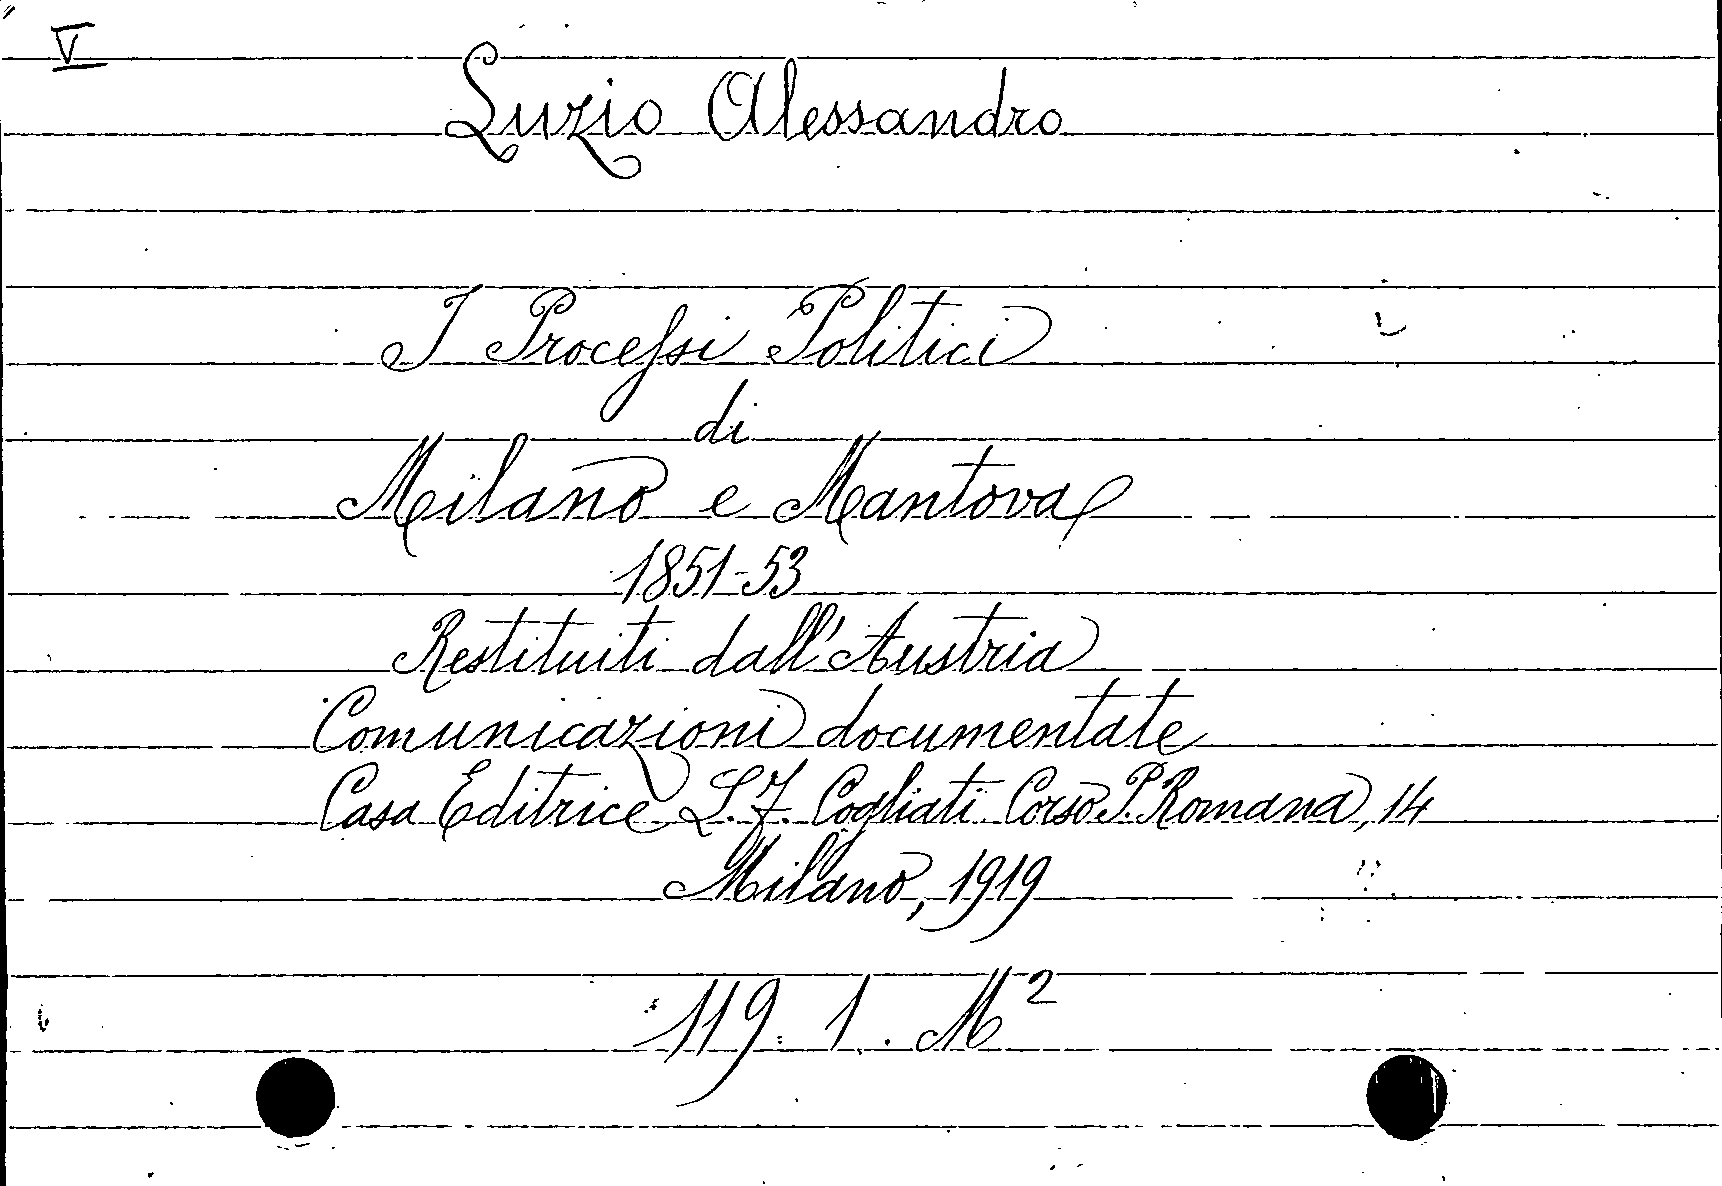 V
Luzio Alessandro
I Processi Politici
di
Milano e Mantova
1851-53
Restituiti dall'Austria
Comunicazioni documentate
Casa Editrice L.F. Cogliati Corso P. Romana, 14
Milano, 1919
119. 1. M²